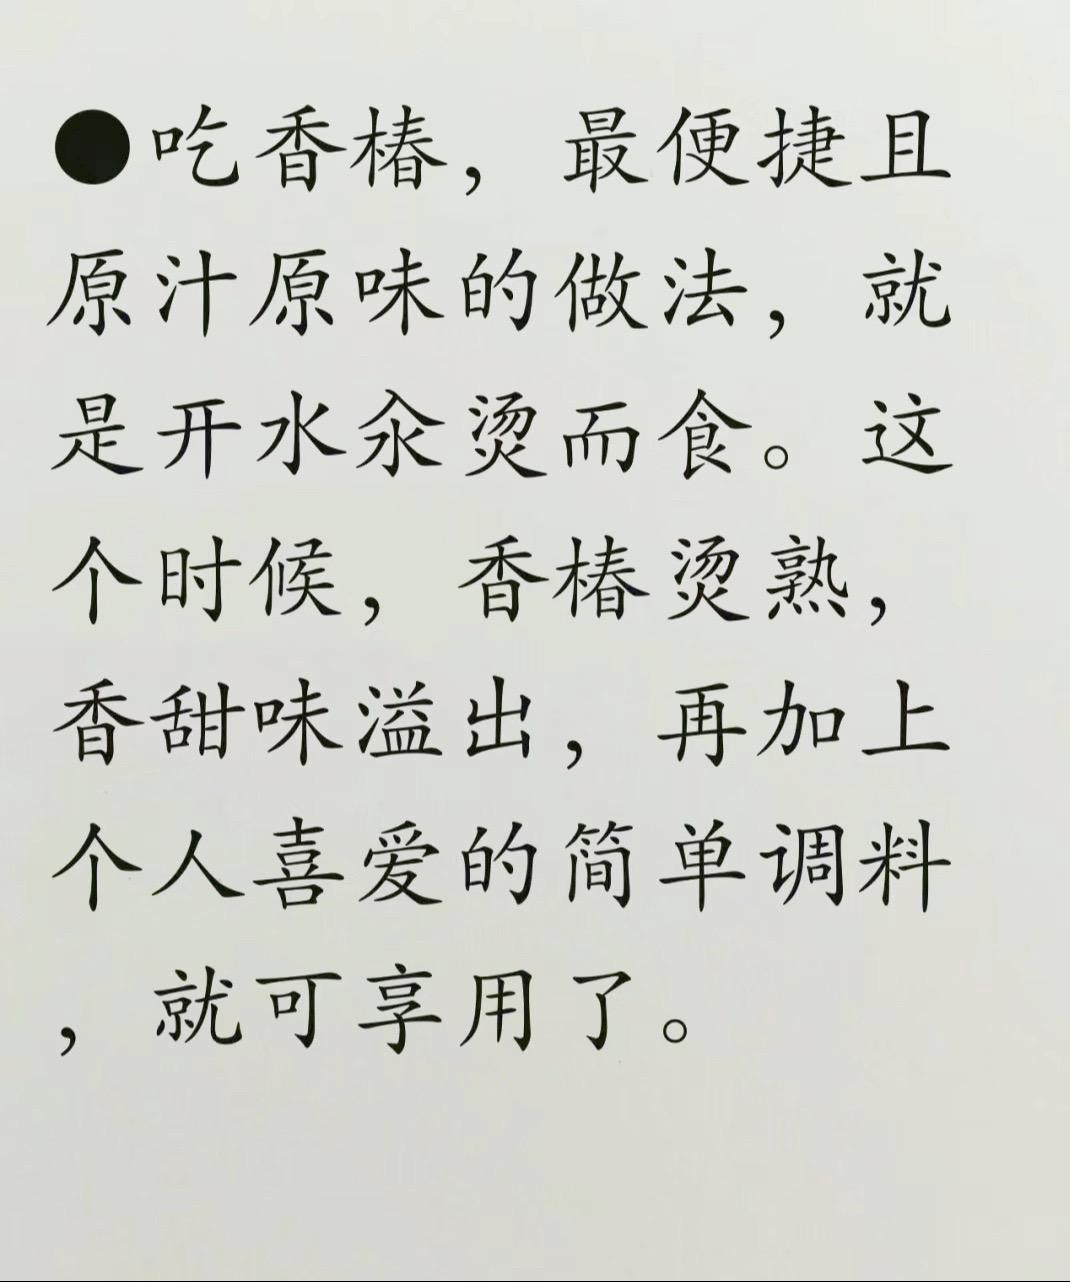 ●吃香椿，最便捷且
原汁原味的做法，就
是开水汆烫而食。这
个时候，香椿烫熟，
香甜味溢出，再加上
个人喜爱的简单调料
，就可享用了。